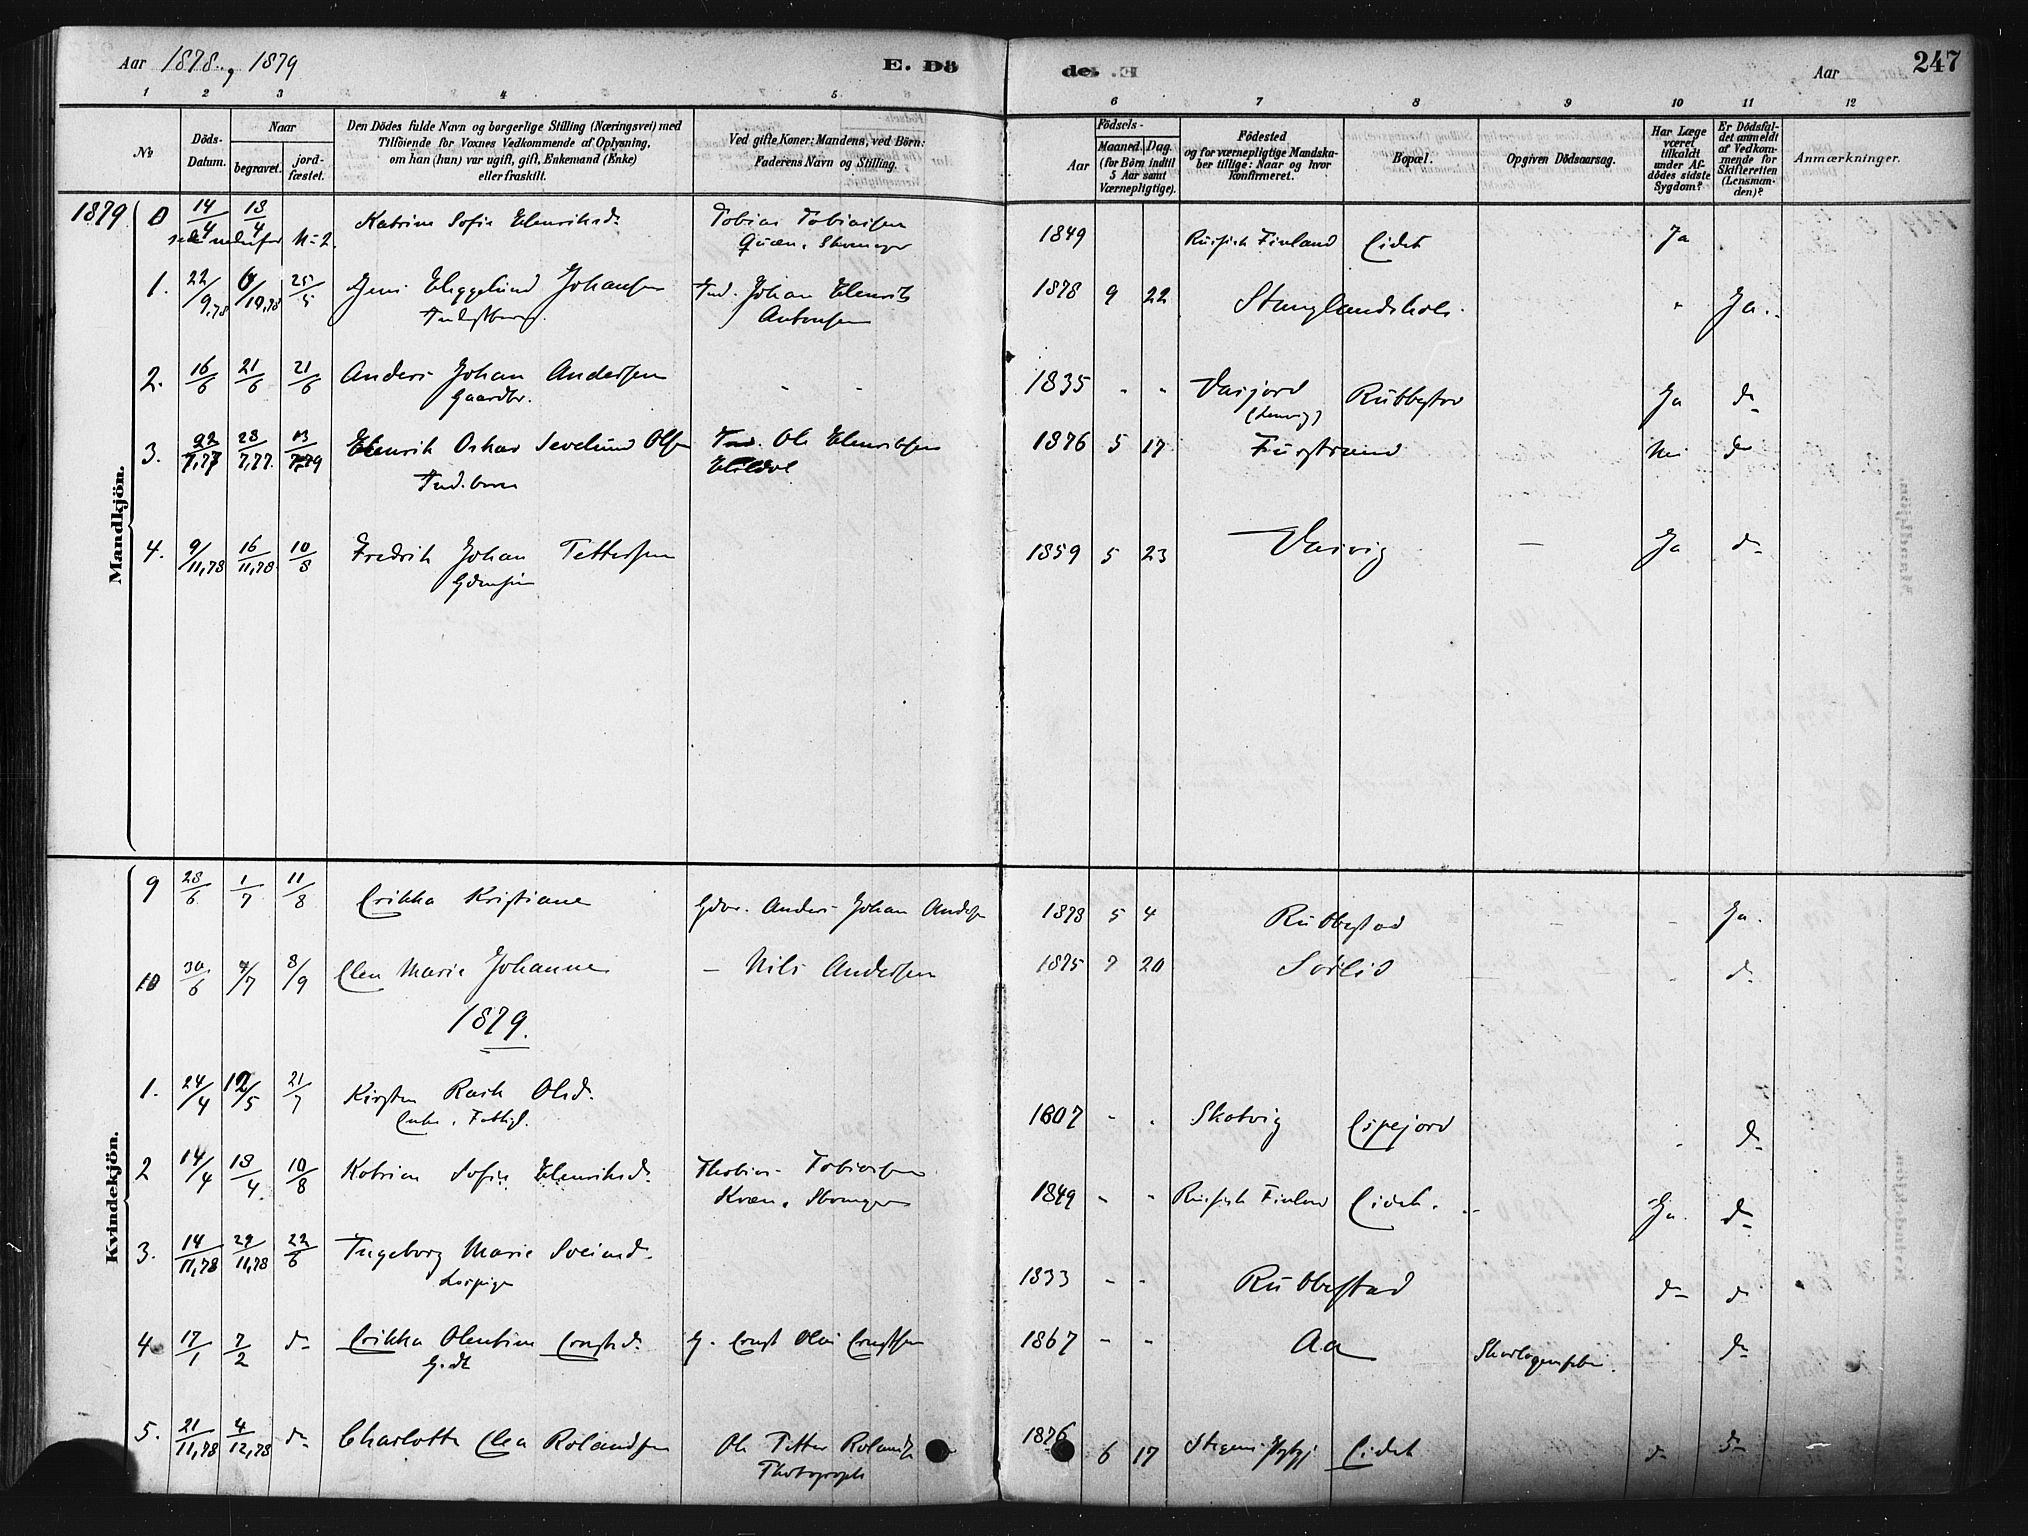 Aar 1878, 1879 E. Dö
de. Aar 247
1 2 3 4 5 6 7 8 9 10 11 12
№ Döds-Datum. Naar begravet. jord-fæstet.
Den Dödes fulde Navn og borgerlige Stilling (Næringsvei) med Tilföiende for Voxnes Vedkommende af Oplysning, om han (hun) var ugift, gift, Enkemand (Enke) eller fraskilt.
Ved gifte Koner: Mandens, ved Börn: Faderens Navn og Stilling.
Födsels- Aar Maaned. Dag. (for Börn indtil 5 Aar samt Værnepligtige).
Födested og for værnepligtige Mandskaber tillige: Naar og hvor konfirmeret.
Bopæl.
Opgiven Dödsaarsag.
Har Læge været tilkaldt under Afdödes sidste Sygdom?
Er Dödsfaldet anmeldt af Vedkommende for Skifteretten (Lensmanden)?
Anmærkninger.
Mandkjön.
1879 0 14/4 18/4 Katrine Sofie Henriksd. Tobias Tobiassen 1849 Russisk Finland Eidet Ja
N-2. Qvæn,
1. 22/9,78 6/10,78 25/5 Jens Johansen Ind. Johan Henrik 1878 9 22 Stunglandshols. " Ja.
Antonsen
2. 16/6 21/6 21/6 Anders Johan Andersen - - 1835 - - Vasjord Rubbestad Ja do
Gaardbr. (Lenvig)
3. 22/7,77 28/7,77. 13/7,79 Henrik Oskar Sevelund Olsen Ind. Ole Henriksen 1876 5 17 Furstrand Nei do
Ind. barn
4. 9/11,78 16/11,78 10/8 Fredrik Johan Pettersen 1859 5 23 Vasvig — Ja do
Kvindekjön.
9 28/6 1/7 11/8 Erikka Kristiane Gdbr. Anders Johan Andersen 1878 5 4 Rubbestad - - Ja.
10 30/6 4/7 8/9 Elen Marie Johanne — Nils Andersen 1875 7 20 Sörlid - do
1879.
1. 24/4 12/5 21/7 Kirsten Rask Olsd. 1807 - - Skatvig Espejord " do
Enke, Fattigl.
2 14/4 18/4. 10/8 Katrine Sofie Henriksd. Thobias Tobiassen 1849 - - Russisk Finland Eidet. Ja. do
Kvæn,
3. 14/11,78 29/11,78 22/6 Ingeborg Marie Sveinsd. 1833 - - Rubbestad do do
4 17/1 7/2 do Erikka Olentine Ernstd. G. Ernst Olai Ernstsen 1867 - - Aa Skarlagensfeber do
G.dt
5. 21/11,78 4/12,78 do Charlotte Elea Rolandsen Ole Petter Rolands 1876 6 17 Eidet do do
Photograph